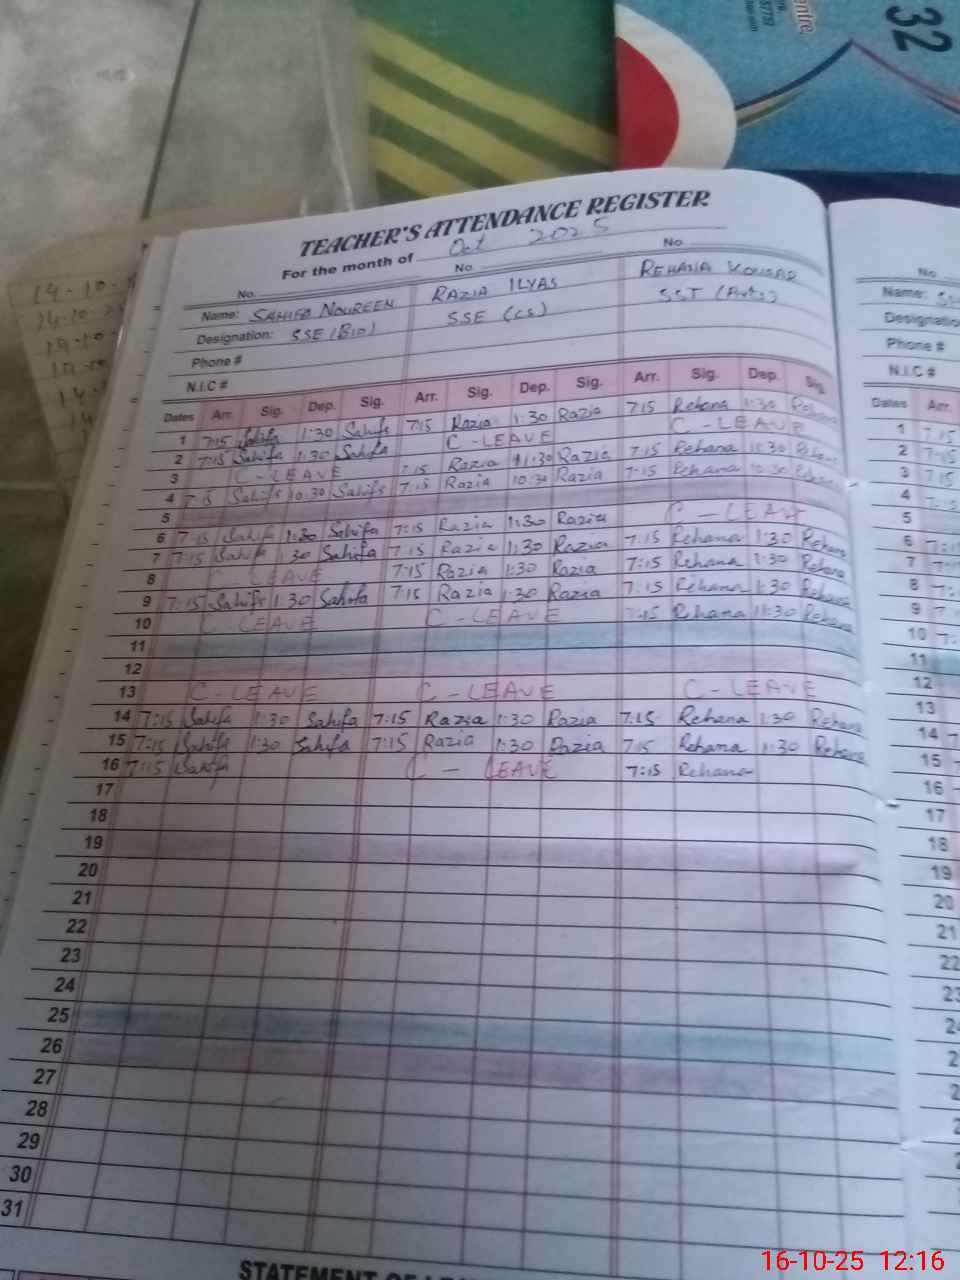 32
entre,
TEACHER'S ATTENDANCE REGISTER
For the month of Oct 2025
No. No. No.
Name: SAHIFA NOUREEN RAZIA ILYAS REHANA KOUSAR
Designation: SSE (BIO) SSE (CS) SST (Arts)
Phone #
N.I.C #
Dates Arr. Sig. Dep. Sig. Arr. Sig. Dep. Sig. Arr. Sig. Dep. Sig.
1 7:15 Sahifa 1:30 Sahifa 7:15 Razia 1:30 Razia 7:15 Rehana 1:30 Rehana
2 7:15 Sahifa 1:30 Sahifa C-LEAVE C-LEAVE
3 C-LEAVE 7:15 Razia 11:30 Razia 7:15 Rehana 11:30 Rehana
4 7:15 Sahifa 10:30 Sahifa 7:15 Razia 10:30 Razia 7:15 Rehana 10:30 Rehana
5
6 7:15 Sahifa 1:30 Sahifa 7:15 Razia 1:30 Razia C-LEAVE
7 7:15 Sahifa 1:30 Sahifa 7:15 Razia 1:30 Razia 7:15 Rehana 1:30 Rehana
8 C-LEAVE 7:15 Razia 1:30 Razia 7:15 Rehana 1:30 Rehana
9 7:15 Sahifa 1:30 Sahifa 7:15 Razia 1:30 Razia 7:15 Rehana 1:30 Rehana
10 C-LEAVE C-LEAVE 7:15 Rehana 11:30 Rehana
11
12
13 C-LEAVE C-LEAVE C-LEAVE
14 7:15 Sahifa 1:30 Sahifa 7:15 Razia 1:30 Razia 7:15 Rehana 1:30 Rehana
15 7:15 Sahifa 1:30 Sahifa 7:15 Razia 1:30 Razia 7:15 Rehana 1:30 Rehana
16 7:15 Sahifa C-LEAVE 7:15 Rehana
17
18
19
20
21
22
23
24
25
26
27
28
29
30
31
STATEMENT OF
No.
Name:
Designation
Phone #
N.I.C #
Dates Arr.
1 7:15
2 7:15
3 7:15
4 7:15
5
6
7
8
9
10
11
12
13
14
15
16
17
18
19
20
21
22
16-10-25 12:16